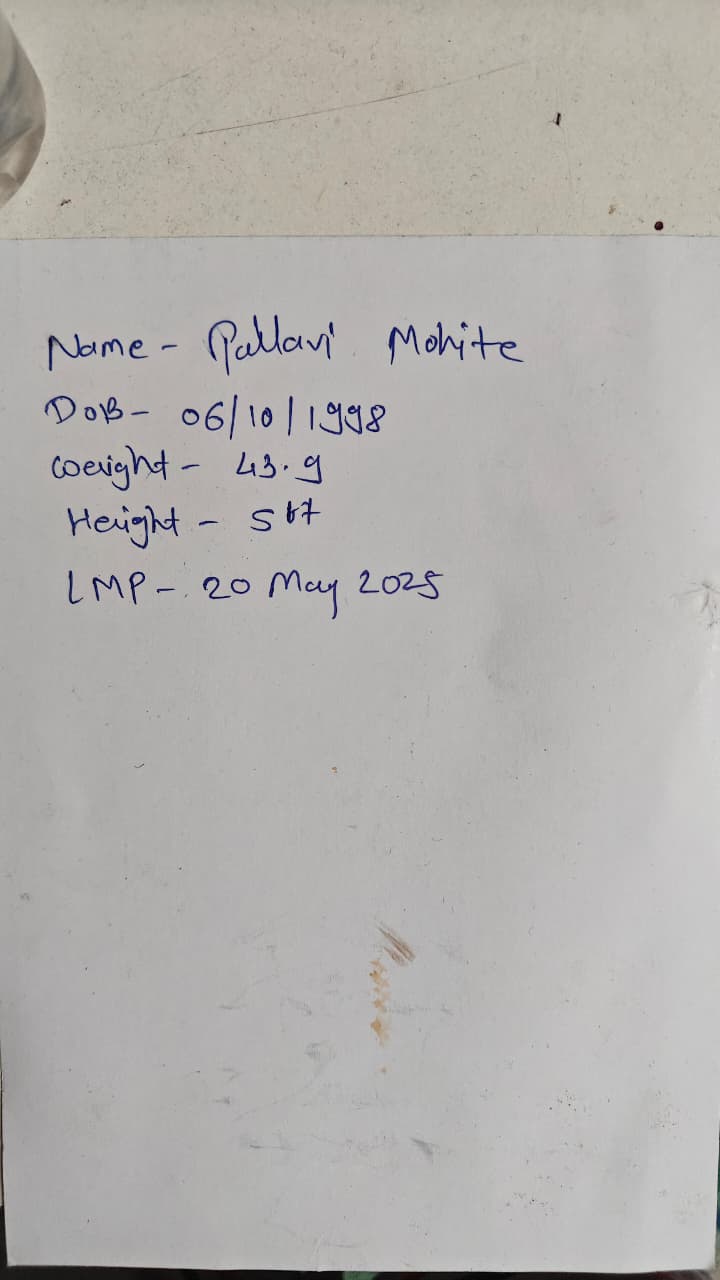 Name - Pallavi Mohite
DOB - 06/10/1998
Weight - 43.9
Height - 5 ft
LMP - 20 May 2025